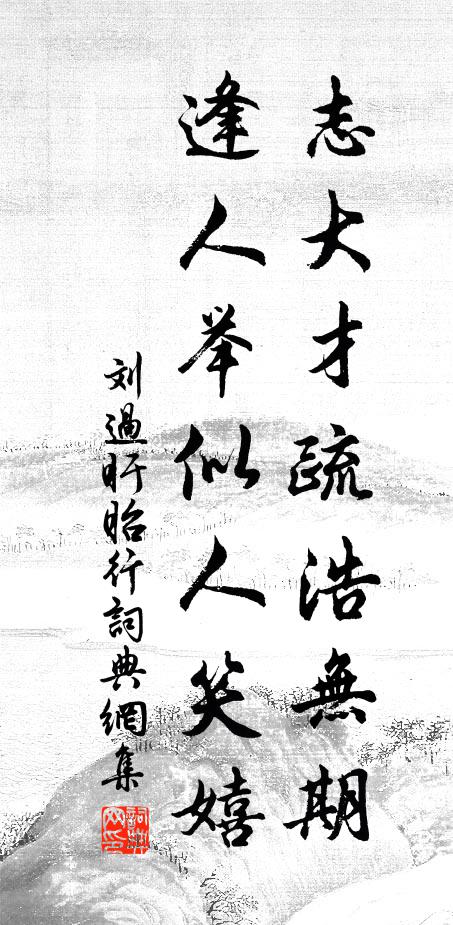 志大才疏浩無期
逢人举似人笑嬉
刘過盱眙行詞典網集